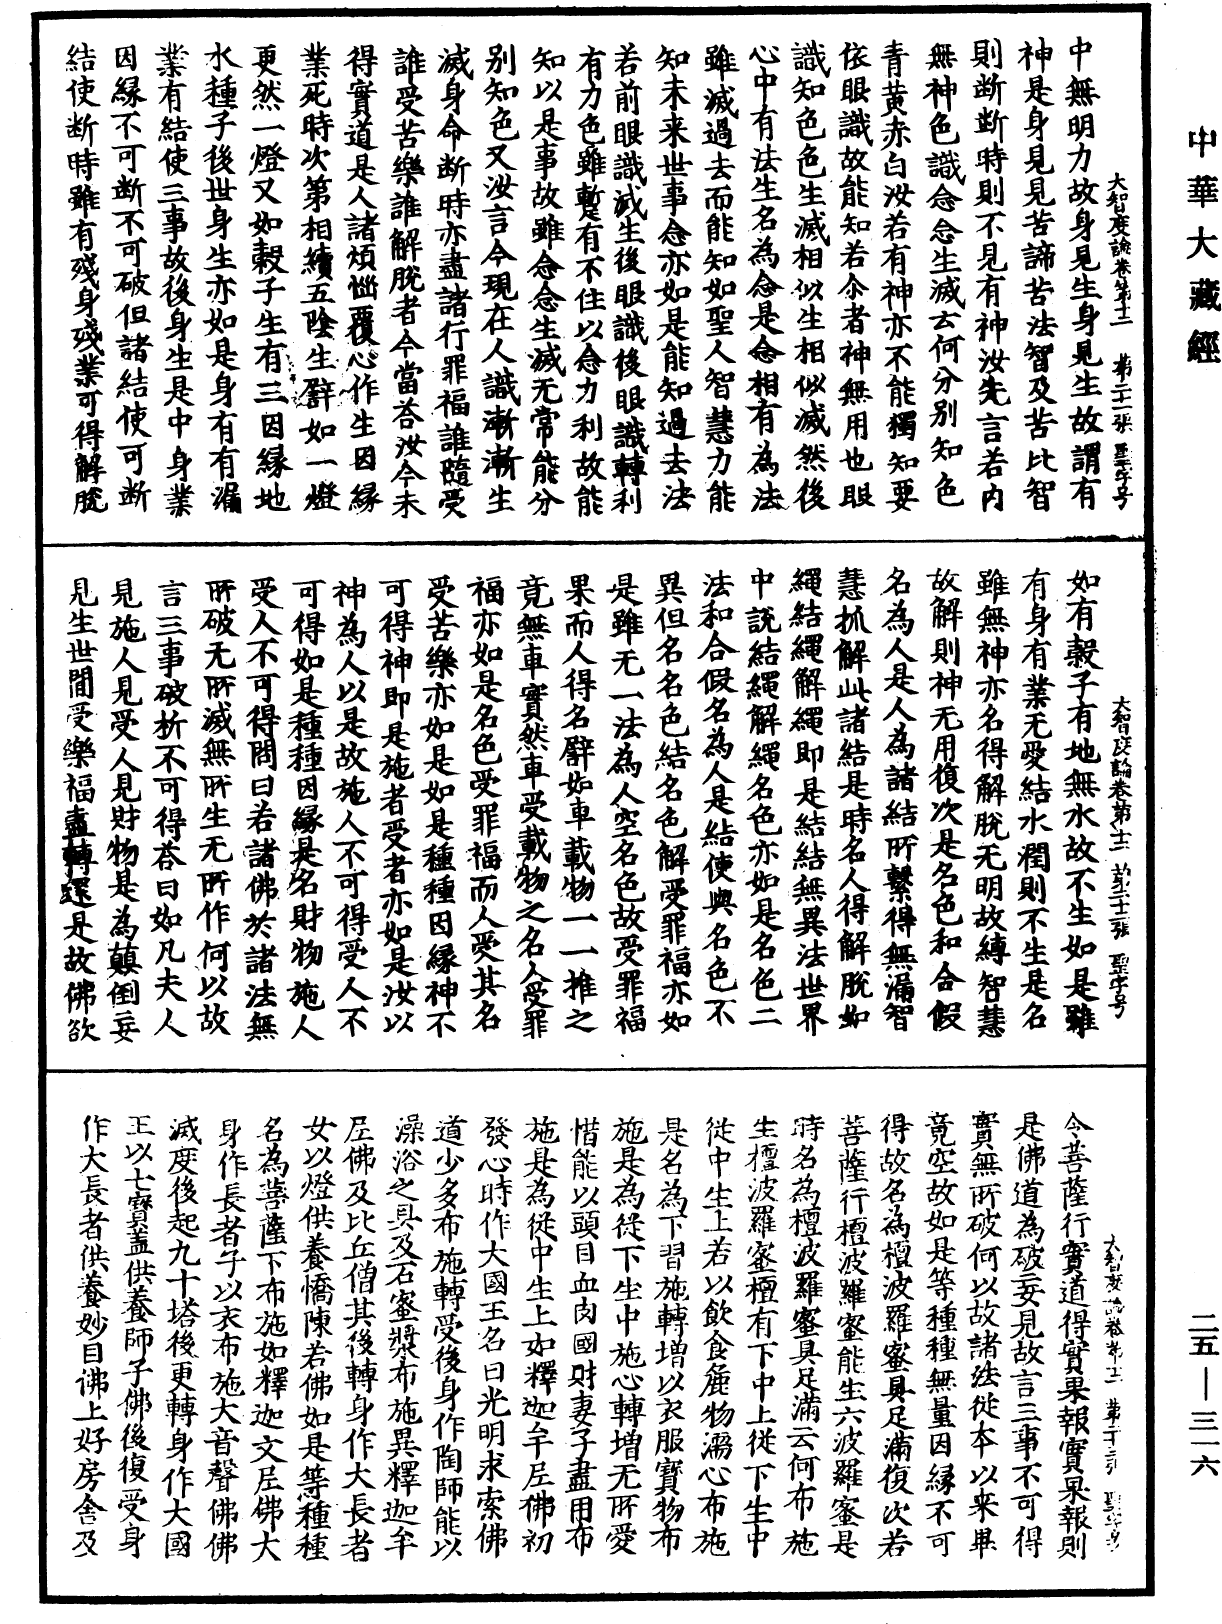 中華大藏經
大智度論卷第十二 第二十一張 聖字号
中無明力故身見生身見生故謂有
神是身見見苦諦苦法智及苦比智
則断断時則不見有神汝先言若内
無神色識念念生滅云何分别知色
青黄赤白汝若有神亦不能獨知要
依眼識故能知若尒者神無用也眼
識知色色生滅相似生相似滅然後
心中有法生名為念是念相有為法
雖滅過去而能知如聖人智慧力能
知未来世事念亦如是能知過去法
若前眼識滅生後眼識後眼識轉利
有力色雖暫有不住以念力利故能
知以是事故雖念念生滅无常能分
别知色又汝言今現在人識漸漸生
滅身命断時亦盡諸行罪福誰隨受
誰受苦樂誰解脱者今當荅汝今未
得實道是人諸煩惱覆心作生因縁
業死時次第相續五陰生譬如一燈
更然一燈又如穀子生有三因縁地
水種子後世身生亦如是身有有漏
業有結使三事故後身生是中身業
因縁不可断不可破但諸結使可断
結使断時雖有殘身殘業可得解脱
大智度論卷第十二 第二十二張 聖字号
如有穀子有地無水故不生如是雖
有身有業无愛結水潤則不生是名
雖無神亦名得解脱无明故縛智慧
故解則神无用復次是名色和合假
名為人是人為諸結所繫得無漏智
慧抓解此諸結是時名人得解脱如
繩結繩解繩即是結結無異法世界
中說結繩解繩名色亦如是名色二
法和合假名為人是結使與名色不
異但名名色結名色解受罪福亦如
是雖无一法為人空名色故受罪福
果而人得名譬如車載物一一推之
竟無車實然車受載物之名人受罪
福亦如是名色受罪福而人受其名
受苦樂亦如是如是種種因縁神不
可得神即是施者受者亦如是汝以
神為人以是故施人不可得受人不
可得如是種種因縁是名財物施人
受人不可得問曰若諸佛於諸法無
所破无所滅無所生无所作何以故
言三事破析不可得荅曰如凡夫人
見施人見受人見財物是為顛倒妄
見生世間受樂福盡轉還是故佛欲
大智度論卷第十二 第二十三張 聖字号
令菩薩行實道得實果報實果報則
是佛道為破妄見故言三事不可得
實無所破何以故諸法從本以来畢
竟空故如是等種種無量因縁不可
得故名為檀波羅蜜具足滿復次若
菩薩行檀波羅蜜能生六波羅蜜是
時名為檀波羅蜜具足滿云何布施
生檀波羅蜜檀有下中上從下生中
從中生上若以飲食麁物濡心布施
是名為下習施轉増以衣服寶物布
施是為從下生中施心轉増无所愛
惜能以頭目血肉國財妻子盡用布
施是為從中生上如釋迦牟尼佛初
發心時作大國王名曰光明求索佛
道少多布施轉受後身作陶師能以
澡浴之具及石蜜漿布施異釋迦牟
尼佛及比丘僧其後轉身作大長者
女以燈供養憍陳若佛如是等種種
名為菩薩下布施如釋迦文尼佛大
身作長者子以衣布施大音聲佛佛
滅度後起九十塔後更轉身作大國
王以七寶盖供養師子佛後復受身
作大長者供養妙目佛上好房舍及
二五—三一六